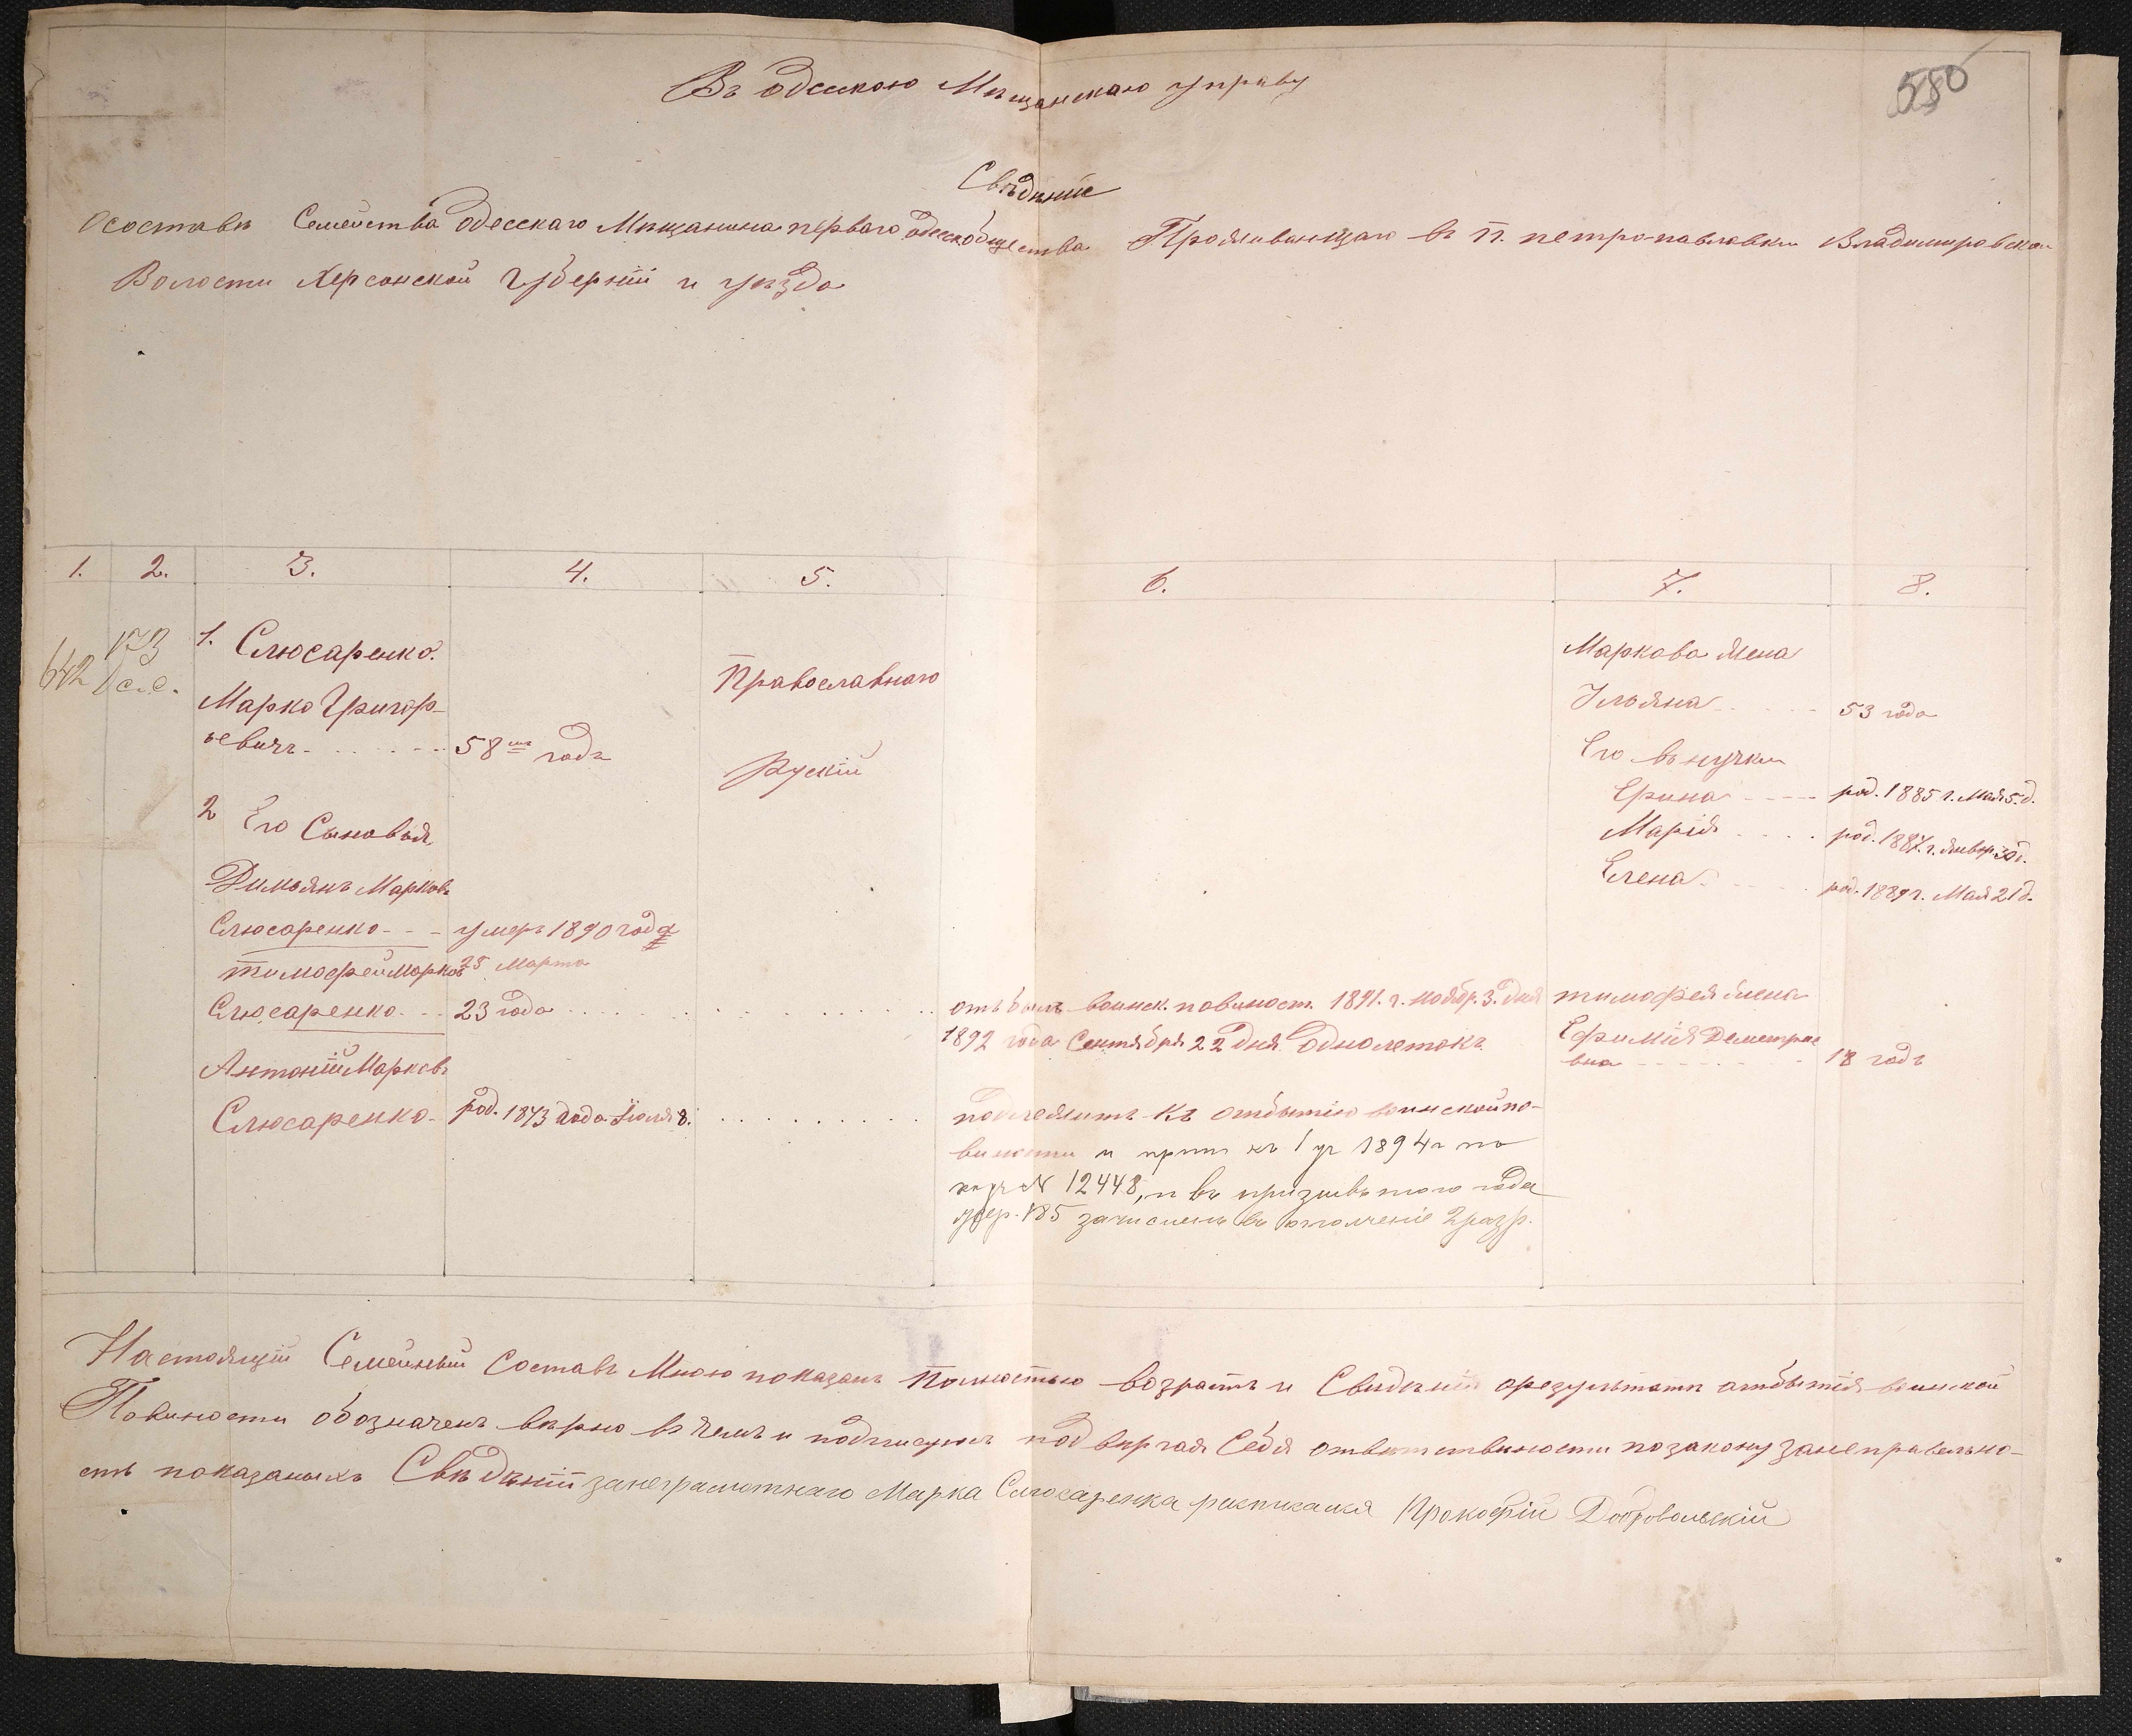 580
Въ Одескою Мѣщанскаю управу
Свѣдѣніе
О составѣ Семейства Одесскаго Мѣщанина перваго одесскобщества Проживающаго въ п. петро-павловки Владимировской
Волости Херсонской Губерніи и уѣзда
1. 2. 3. 4. 5. 6. 7. 8.
642 173 с.с.
1. Слюсаренко.
Марко Григор-
ьевичъ 58 годъ
Православнаго
Рускій
Маркова жена
Ульяна 53 года
Его внучки
Ерина род. 1885 г. Мая 5. д.
Марія род. 1887. г. январ 30 д.
Елена род. 1889 г. Мая 21 д.
2 Его Сыновья
Димьянъ Марковъ
Слюсаренко - - - умеръ 1890 года
25 Марта
тимофей Марков
Слюсаренко - - 23 года отъбылъ воинск. повиност. 1891. г. ноябр. 3. дня
1892 года Сентября 22 дня Однолетокъ
тимофея жена
Ефимія Деметрие
вна 18 годъ
Антоній Марковъ
Слюсаренко - род. 1873 года Іюля 8.
подлежитъ къ отбытію воинской по-
виности и прип къ 1 уч 1894 г по
№ 12448, и въ призывъ того года
жер. 185 зачисленъ въ ополченіе 2 разр.
Настоящій Семейный Составъ Мною показанъ полностью возрастъ и Свидѣнія орезультати отбытія воинской
Повиности обозначенъ вѣрно въ чемъ и подписуюсъ подвиргая Себя ответствиности позакону занеправельно-
сть показаныхъ Свѣдѣній занеграмотнаго Марка Слюсаренка расписался Прокофій Добровольскій